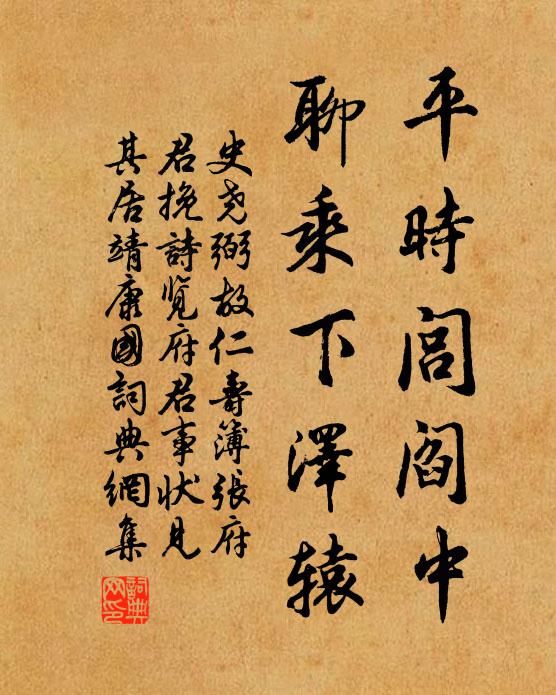 平時閭閻中
聊乘下澤轅
史堯弼故仁壽簿張府
君挽詩覽府君事狀見
其居靖康國詞典網集
詞典
网印